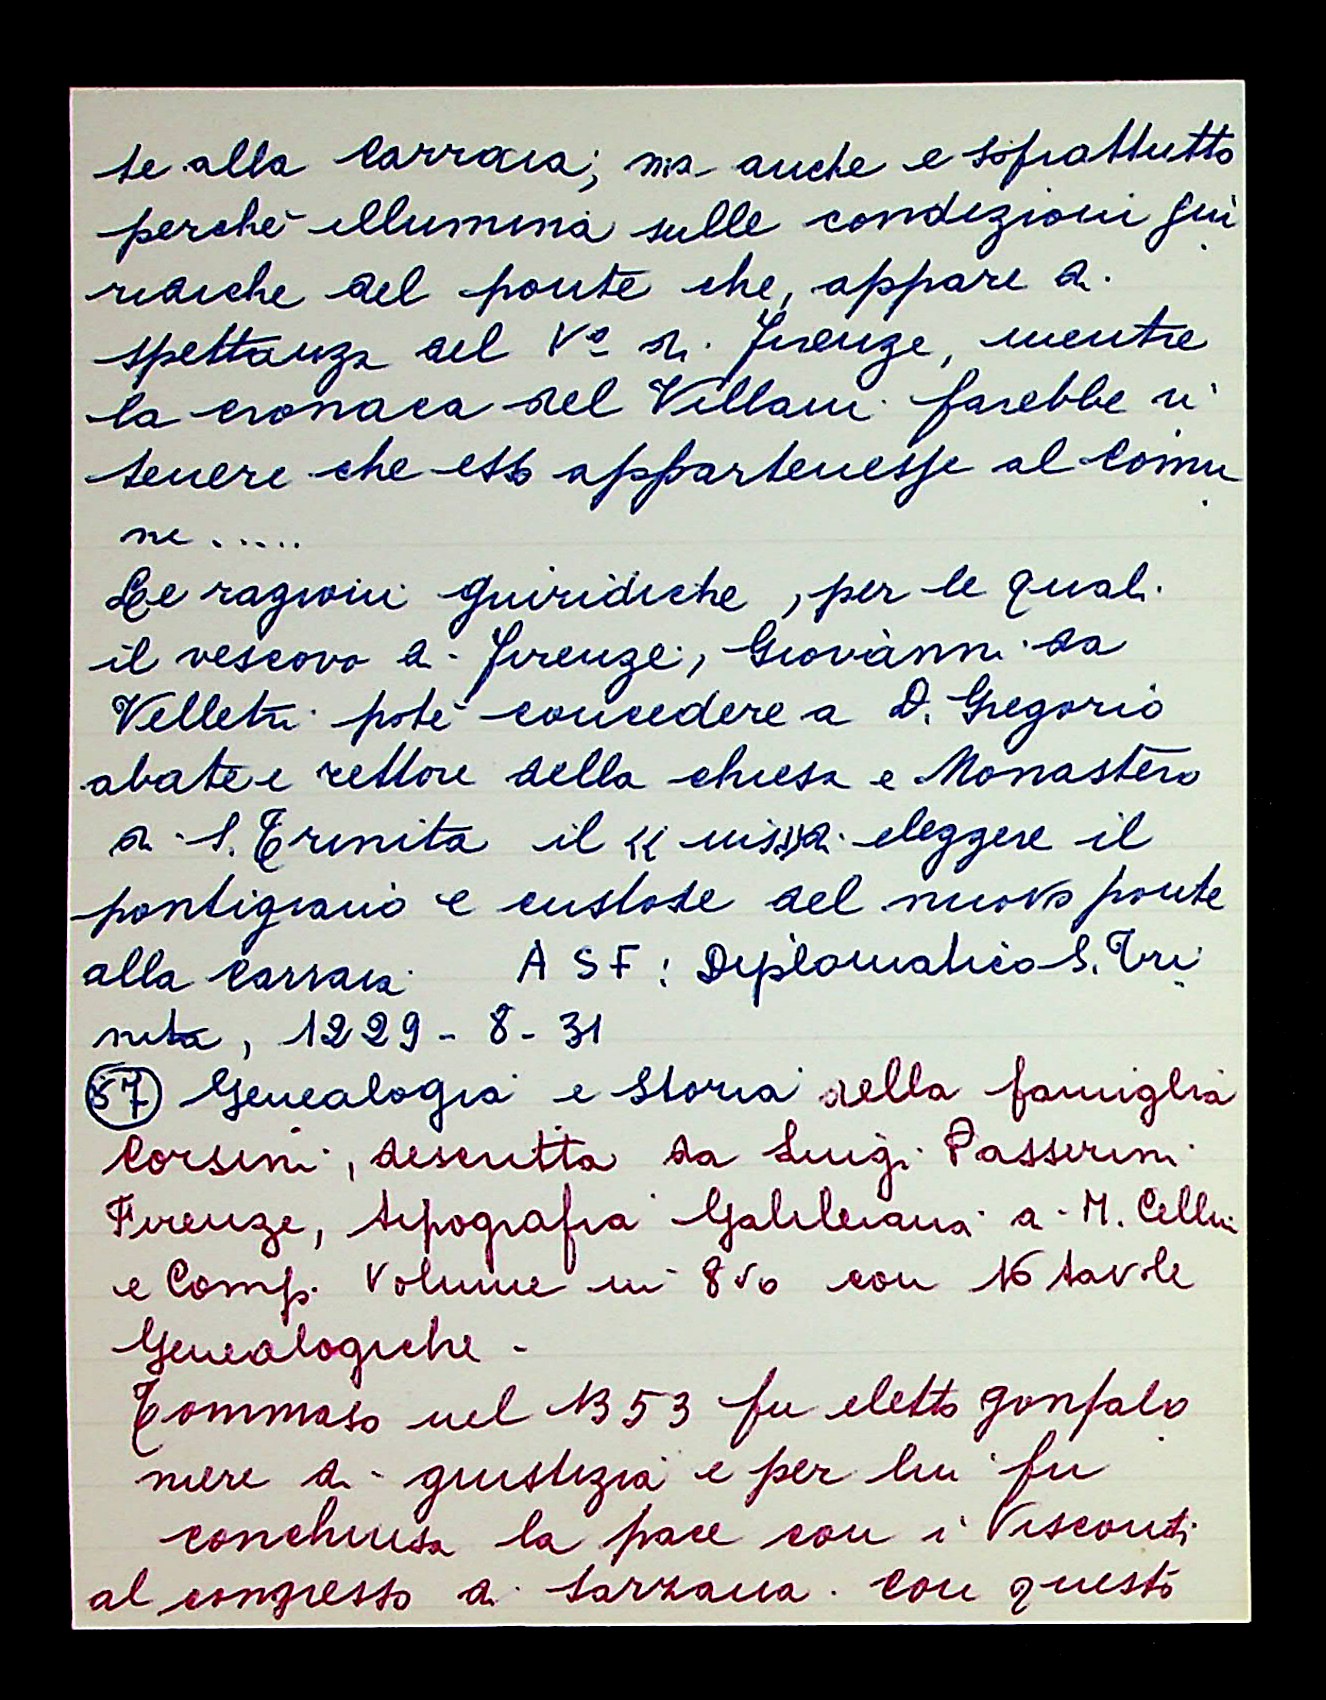 te alla Carraia; ma anche e soprattutto
perchè illumina sulle condizioni giu
ridiche del ponte che, appare di
spettanza del Vº di Firenze, mentre
la cronaca del Villani farebbe ri
tenere che esso appartenesse al Comu
ne .....
Le ragioni giuridiche, per le quali
il vescovo di Firenze, Giovanni da
Velletri potè concedere a D. Gregorio
abate e rettore della chiesa e Monastero
di S. Trinita il eleggere il
pontigiano e custode del nuovo ponte
alla Carraia ASF: Diplomatico S. Tri
nita, 1229-8-31
57 Genealogia e Storia della famiglia
Corsini, descritta da Luigi Passerini
Firenze, tipografia Galileiana di M. Cellini
e Comp. Volume in 8vo con 16 tavole
Genealogiche -
Tommaso nel 1353 fu eletto gonfalo
niere di giustizia e per lui fu
conchiusa la pace con i Visconti
al congresso di Sarzana. Con questo